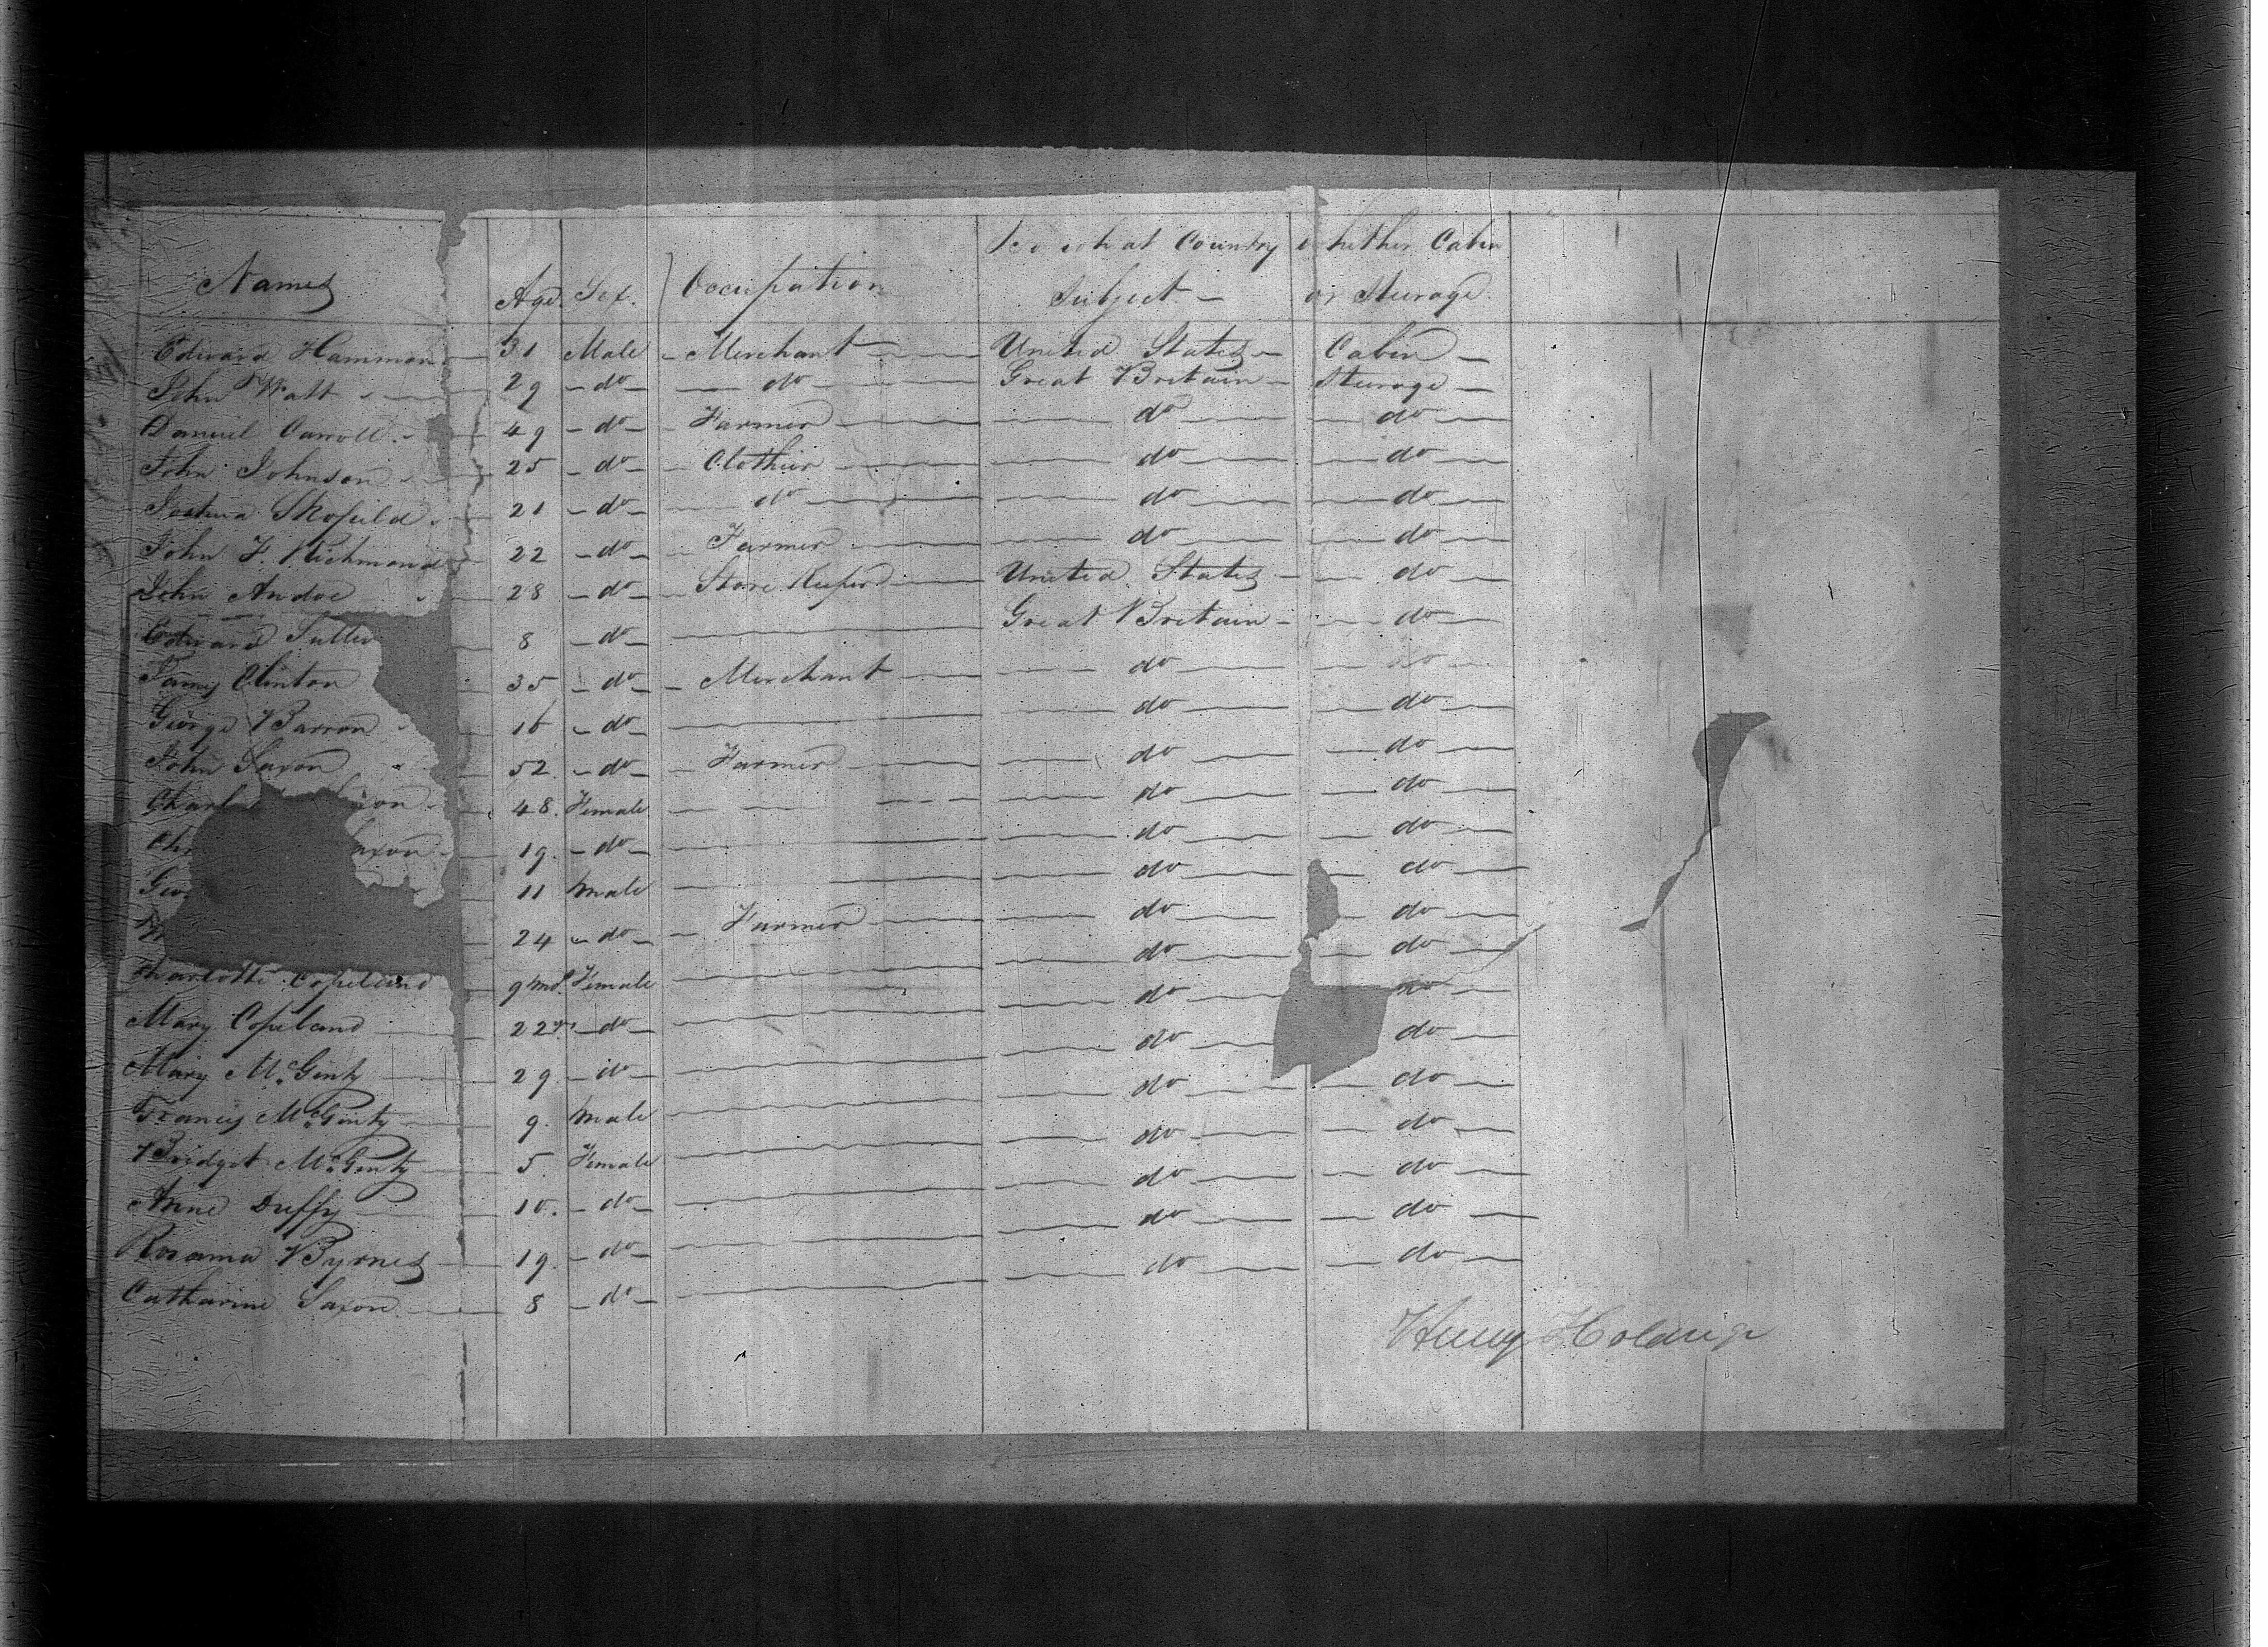 Names Age. Sex. Occupation To what Country Subject – Whether Cabin or Steerage.
Edward Hammon 31 Male Merchant United States Cabin
John Watt 29 do do Great Britain Steerage
Daniel Carroll 49 do Farmer do do
John Johnson 25 do Clothier do do
Joshua Skofield 21 do do do do
John F. Richmond 22 do Farmer do do
John Andoe 28 do Store Keeper United States do
Edward 8 do Great Britain do
James Clinton 35 do Merchant do do
George Barron 16 do do do
John Saxon 52 do Farmer do do
Charl xon 48 Female do do
Chr axon 19 do do do
Geo 11 male do do
24 do Farmer do do
Charlotte Copeland 9 ms. Female do do
Mary Copeland 22 yrs do do do
Mary McGinty 29 do do do
Francis McGinty 9 male do do
Bridget McGinty 5 Female do do
Anne Duffy 10 do do do
Rosanna Byrnes 19 do do do
Catharine Saxon 8 do do do
Henry